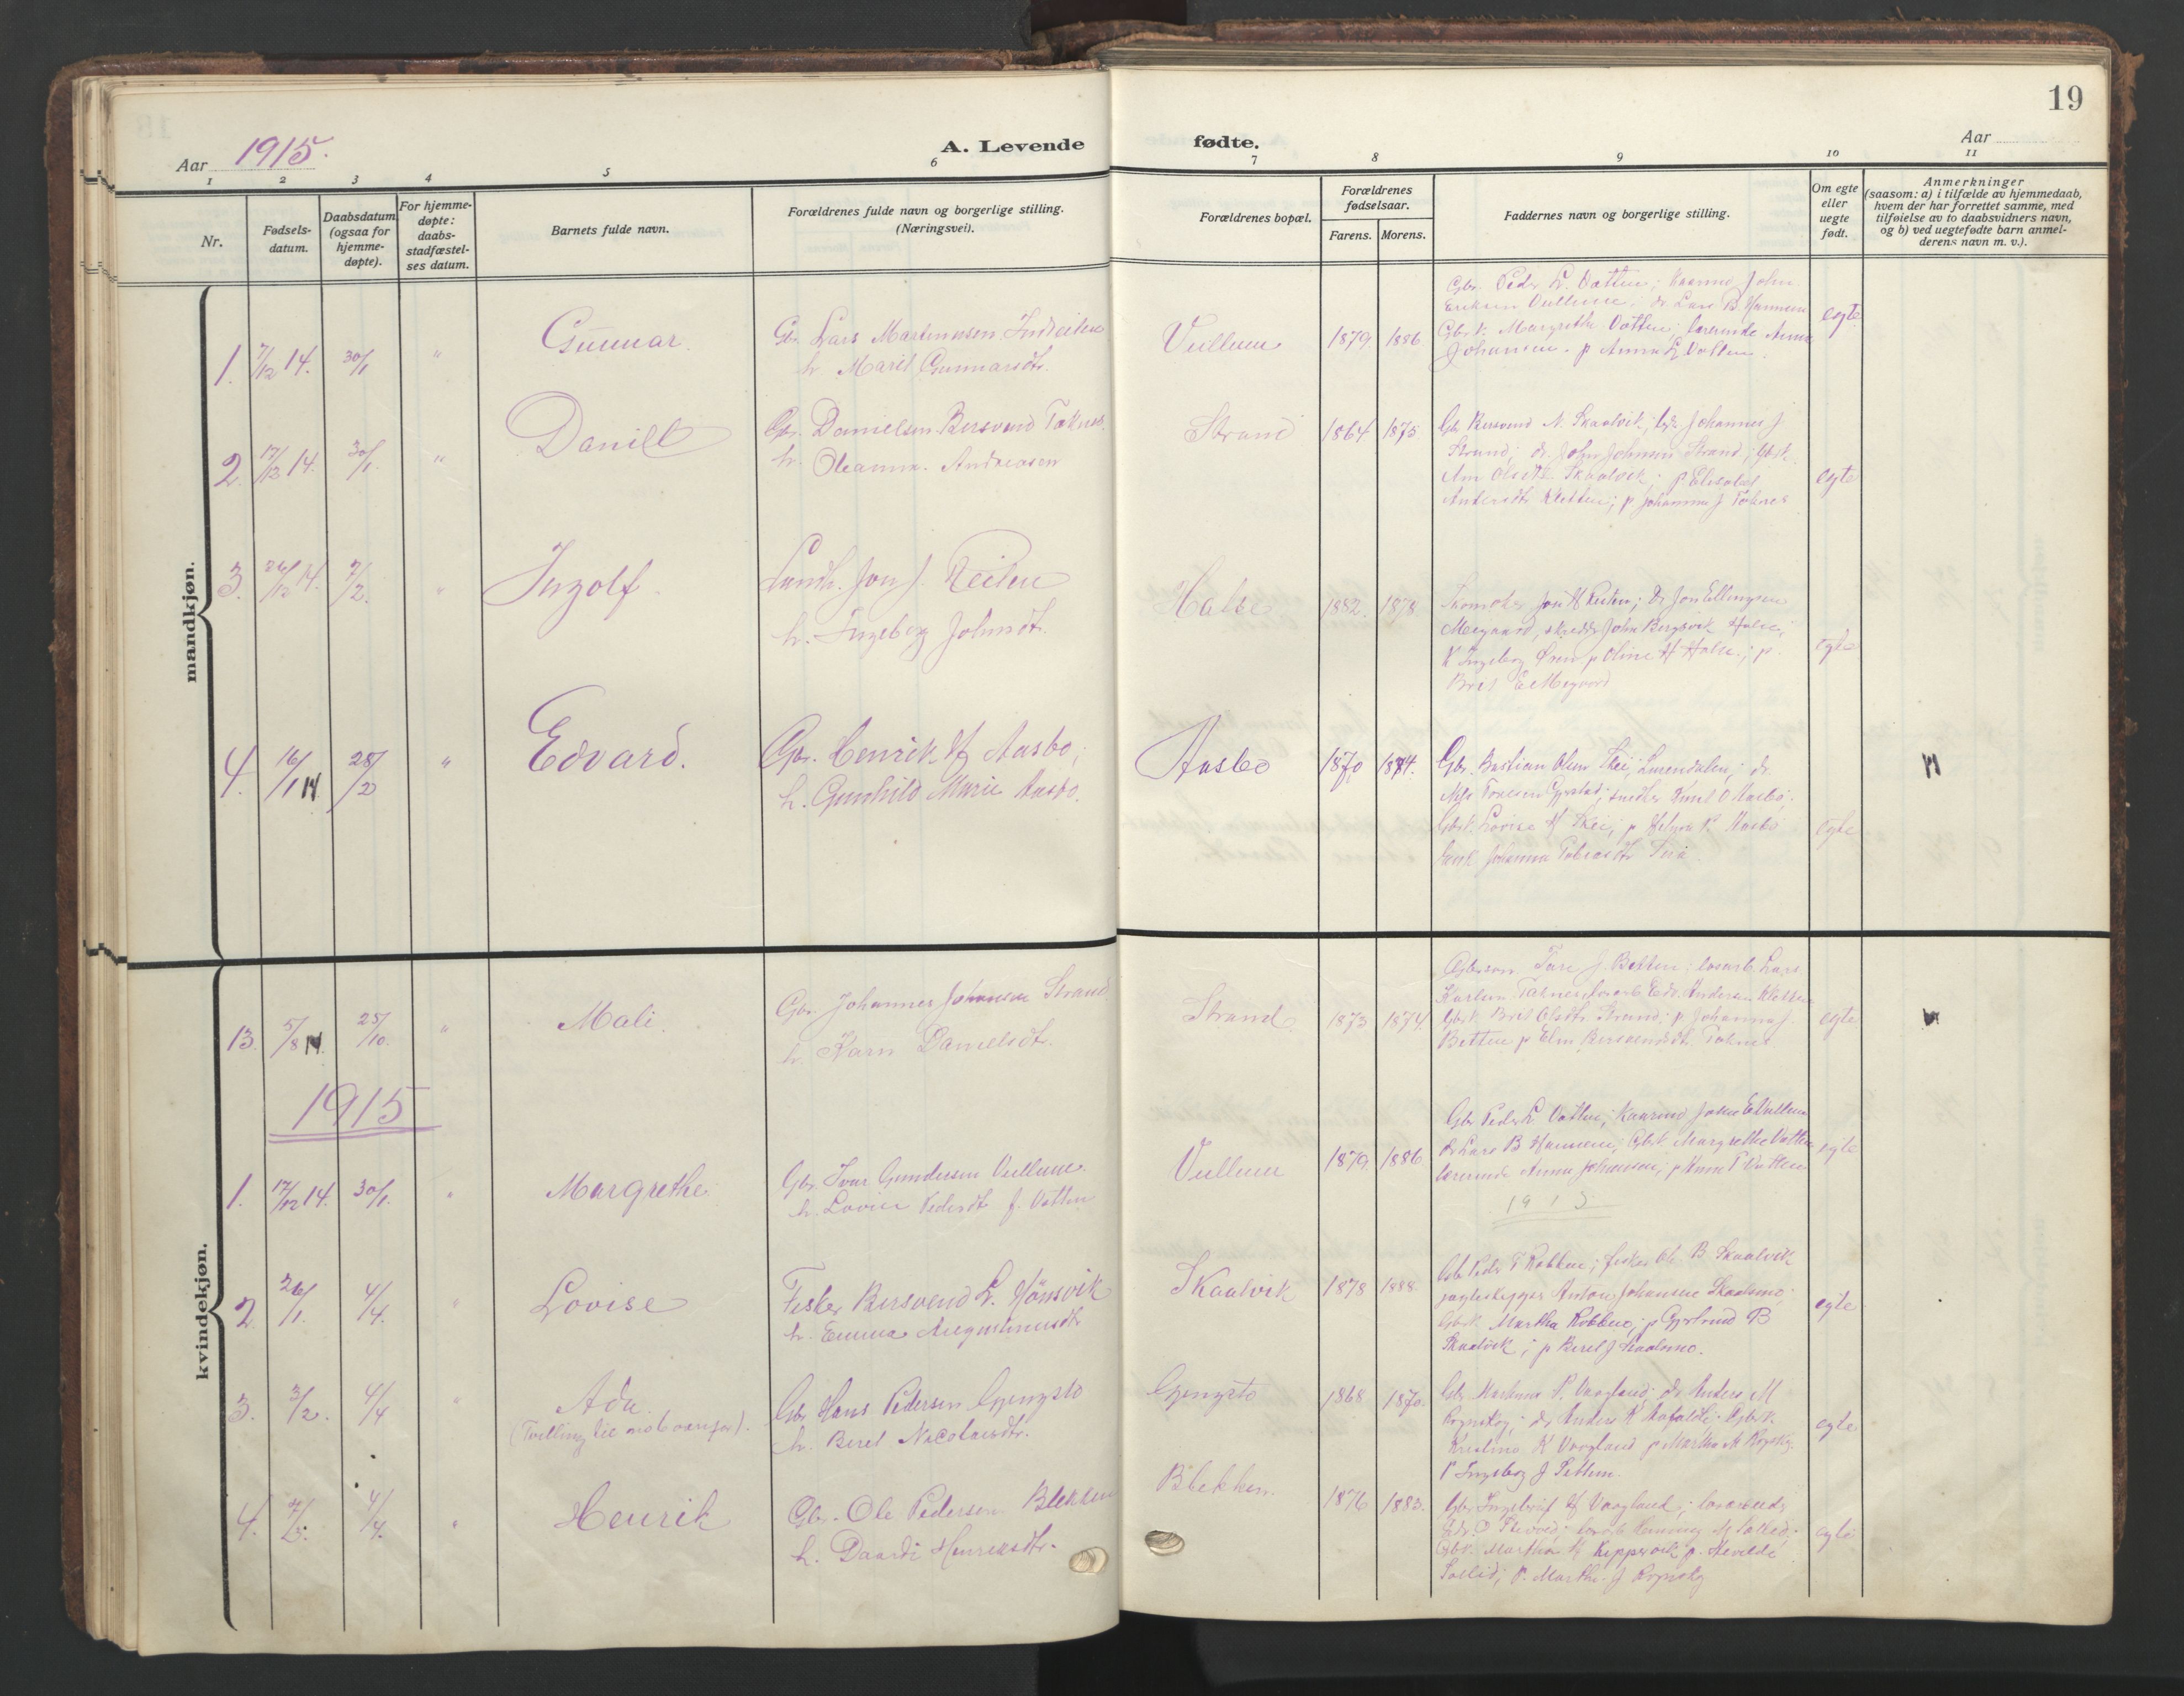 19
Aar 1915.
A. Levende fødte.
Aar
1 2 3 4 5 6 7 8 9 10 11
Nr.
Fødsels-
datum.
Daabsdatum
(ogsaa for
hjemme-
døpte).
For hjemme-
døpte:
daabs-
stadfæstel-
ses datum.
Barnets fulde navn.
Forældrenes fulde navn og borgerlige stilling.
(Næringsvei).
Forældrenes bopæl.
Forældrenes
fødselsaar.
Farens. Morens.
Faddernes navn og borgerlige stilling.
Om egte
eller
uegte
født.
Anmerkninger
(saasom: a) i tilfælde av hjemmedaab,
hvem der har forrettet samme, med
tilføielse av to daabsvidners navn,
og b) ved uegtefødte barn anmel-
derens navn m. v.).
mandkjøn.
1. 7/12 14. 30/1 " Gunnar.
Gbr. Lars Martinusen
h. Marit Gunnarsdtr.
Vullum 1879 1886
Gbr. Peder L. Vatten; John
Eriksen Vullum; dr Lars B. Hannem
Gbrk. Margrethe Vatten; lærerinde Anna
Johansen. p Anna Vatten.
egte
2. 17/12 14. 30/1. " Daniel
Gbr. Danielsen Bersvend Taknes.
h. Oleanna Andreasen
Strand 1864 1875
Gbr Bersvend N. Skaalvik; Gbr Johannes J.
Strand; dr. John Johnsen Strand; Gbrk.
Ane Olsdtr Skaalvik; p Elisabet
Andersdtr Kletten; p Johanna J Taknes
egte
3. 26/12 14. 7/2. " Ingolf.
Landh. Jon J. Reiten
h. Ingeborg Johnsdtr.
Halse 1882. 1878
Jon H Reiten; dr Jon Ellingsen
Megaard, skrædder John Bergsvik Halse;
K Ingeborg Øren p Oline H Halse; p.
Beret E Megaard
egte
4. 16/1 14 28/2 " Edvard.
Gbr. Henrik H Aasbø;
h. Gunhild Marie Aasbø.
Aasbø 1870 1874.
Gbr. Bastian Olsen Skei, Surendalen; dr
Nils; snedker Knut O Aasbø;
Gbrk. Lovise H Skei; p Aasbø
Johanna Tobiasdtr
egte
kvindekjøn.
13. 5/8 14. 25/10. " Mali.
Gbr. Johannes Johansen Strand
h. Karn Danielsdt.
Strand 1873 1874.
Gbrsøn Tore J. Betten; løsarb. Lars
Karlsen Taknes; løsarb Edv. Andersen Kletten
Gbrk Brit Olsdtr. Strand; p Johanna J.
Betten p Elen Bersvendsdt. Taknes
egte
1915
1. 17/12 14. 30/1. " Margrethe.
Gbr. Ivar Gundersen Vullum
h. Lovise Pedersdt f. Vatten
Vullum 1879 1886
Gbr Peder L Vatten; John E Vullum
dr Lars B Hannem; Gbrk Margrethe Vatten
lærerinde Anna Johansen; p Anna P Vatten
egte
1915
2. 26/1. 4/4. " Lovise
Fisker Bersvend L. Hønsvik
h. Emma Augustinusdtr
Skaalvik 1878 1888.
Gbr Peder T Rokken; fisker Ole B Skaalvik
jagteskipper Anton Johansen Skaalmo;
Gbrk Martha Rokken; p Gjertrud B
Skaalvik; p Beret J Skaalmo.
egte
3. 3/2. 4/4 " Ada.
(Tvilling til no 6 ovenfor).
Gbr Hans Pedersen Gjengstø
h. Beret Nicolaisdtr.
Gjengstø 1868 1870.
Gbr. P. Vaagland; dr Anders M
Rognskog; dr Anders K; Gbrk
K Vaagland p Martha M Rognskg.
P Ingeborg J Settem.
egte
4. 4/4. " Henrik
Gbr. Ole Pedersen Blekken
h. Henriksdtr.
Blekken. 1876 1883.
Gbr H Vaagland; løsarbeider
Edv. O; løsarb Henning M;
Gbk. Martha K p.
Sollid; P. Marthe J Rognskg
egte